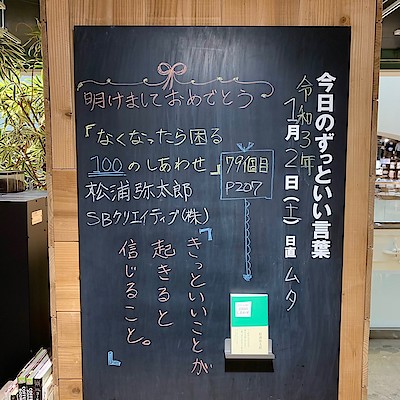 今日のずっといい言葉
令和3年
1月2日(土)日直 ムタ
明けましておめでとう
『なくなったら困る
100のしあわせ』
松浦弥太郎
SBクリエイティブ(株)
79個目
P207
「きっといいことが
起きると
信じること。」